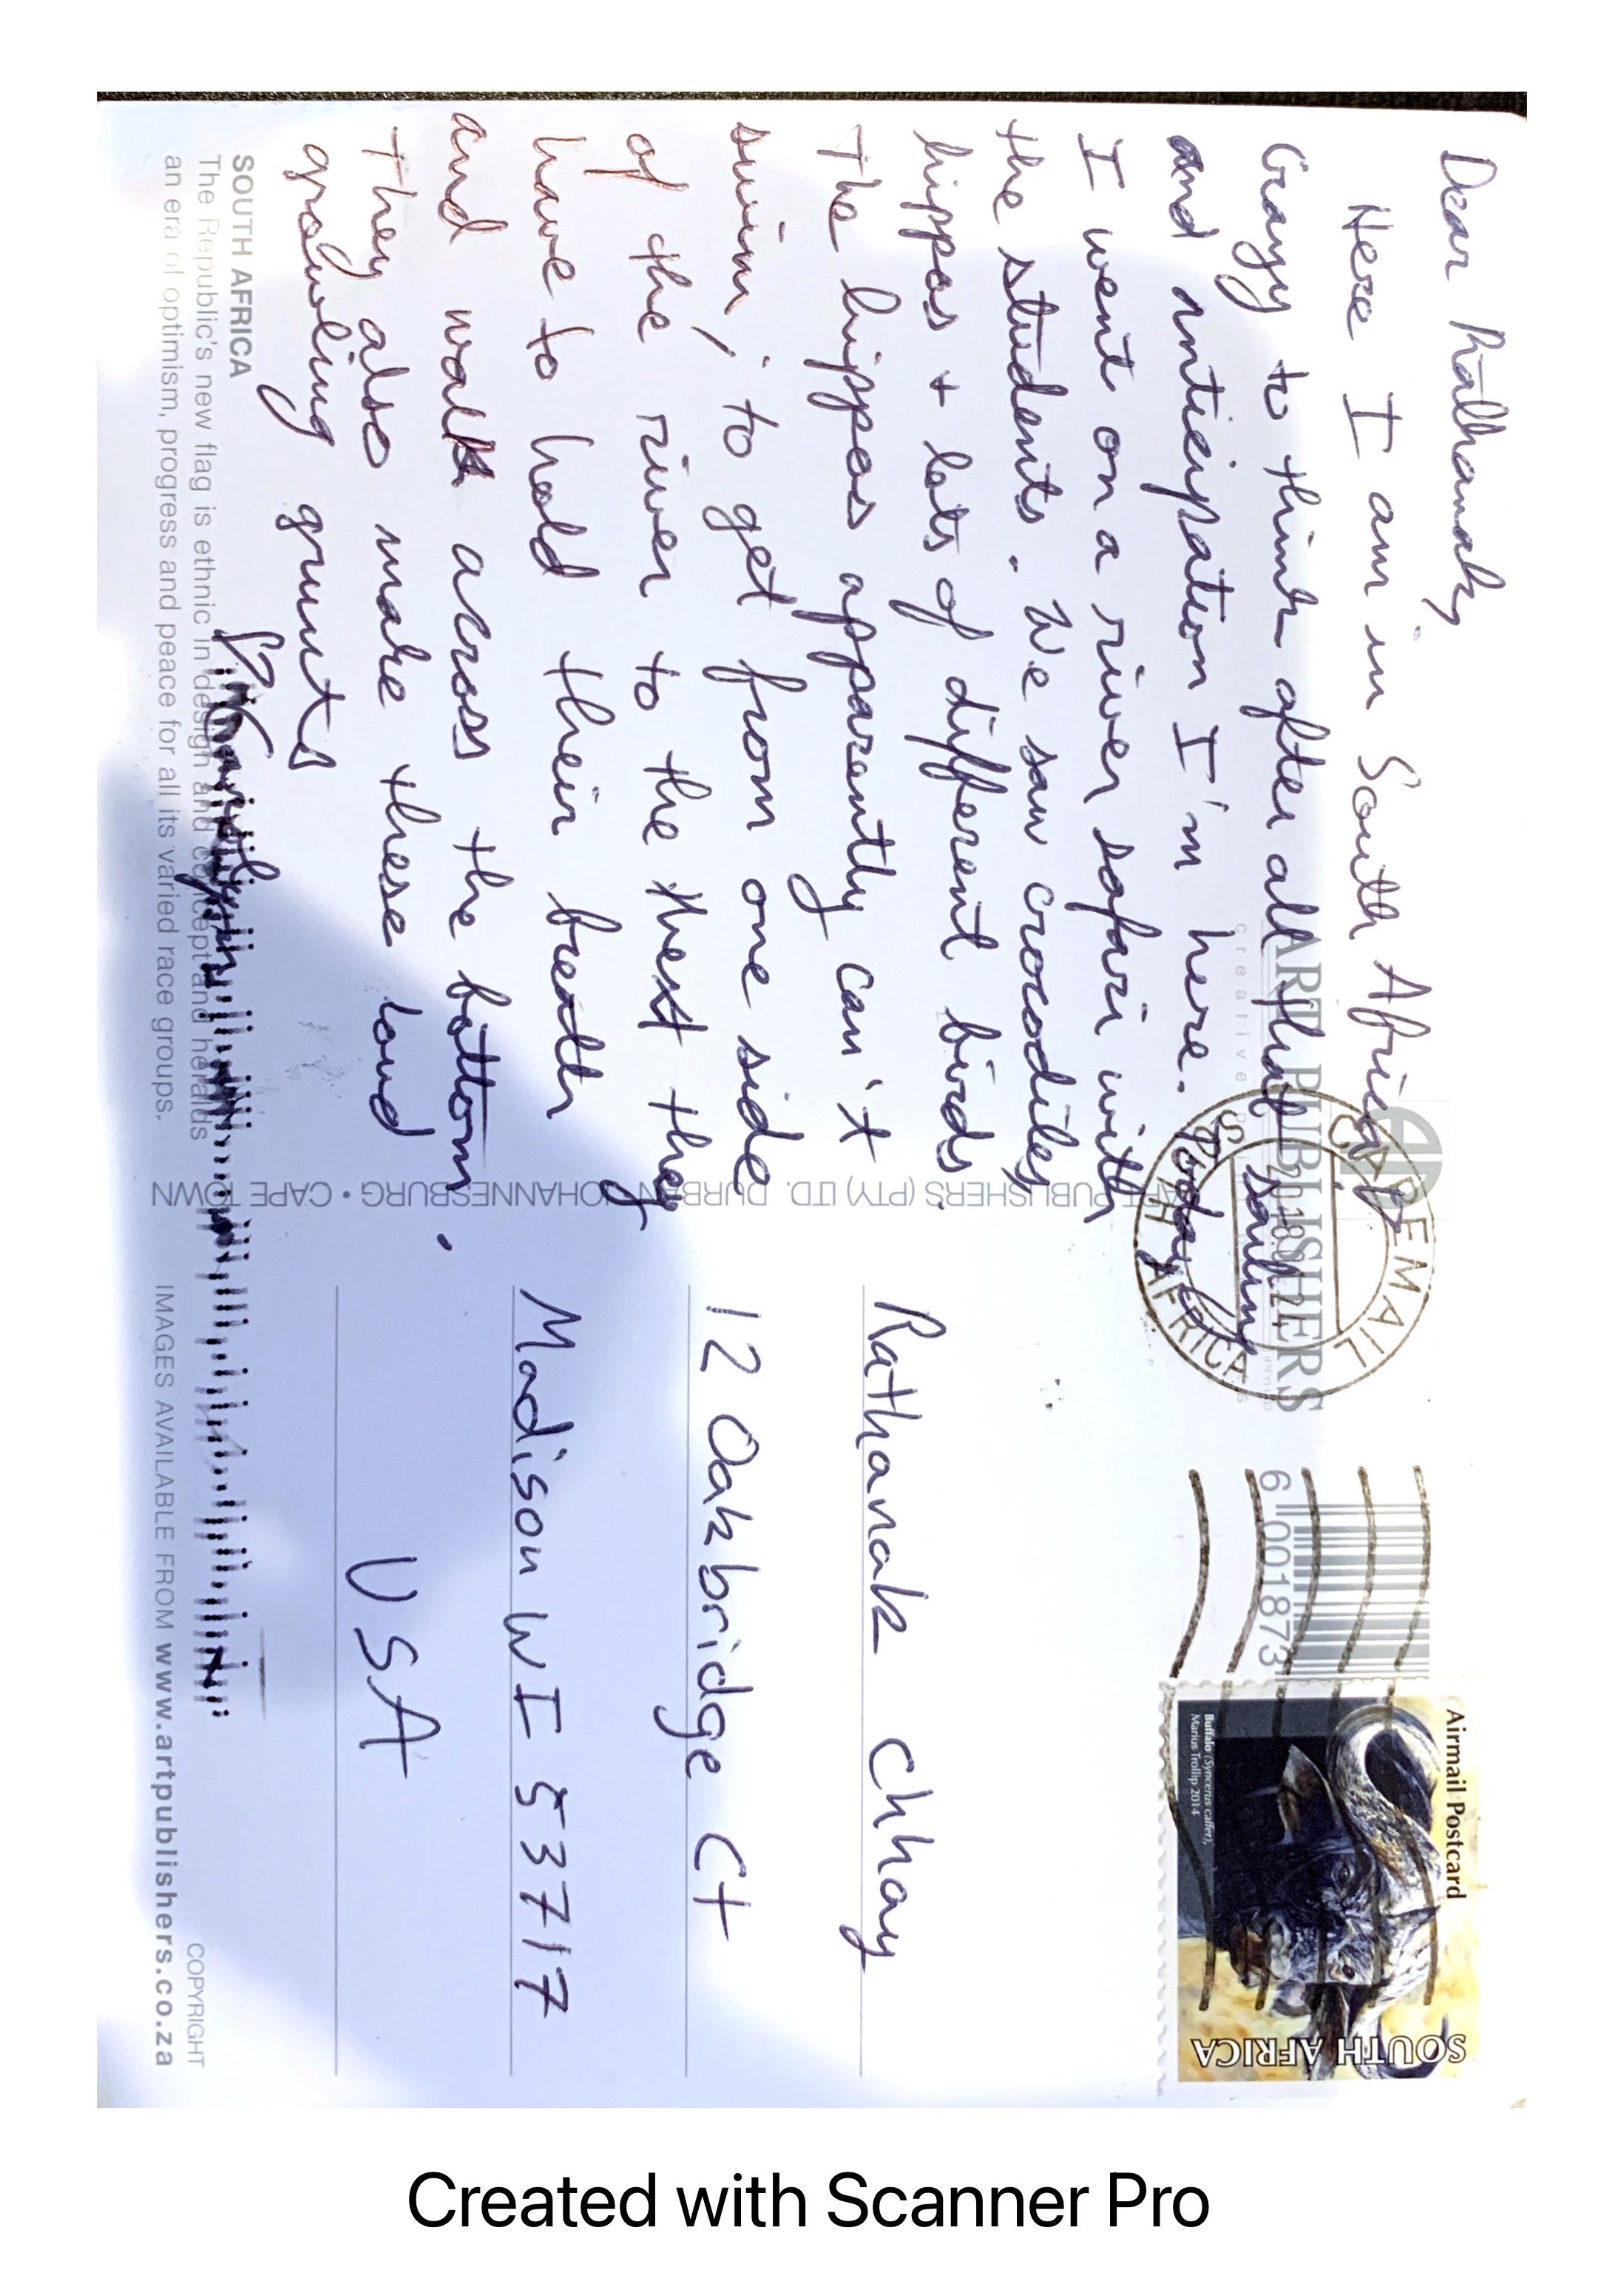 Dear Rathanak,
Here I am in South Africa!
Crazy to think after all that saving
and anticipation I'm here. Today
I went on a river safari with
the students. We saw crocodiles
hippos + lots of different birds.
The hippos apparently can't
swim; to get from one side
of the river to the next they
have to hold their breath
and walk across the bottom.
They also make these loud
growling grunts
SOUTH AFRICA
The Republic's new flag is ethnic in design and concept and heralds
an era of optimism, progress and peace for all its varied race groups.
ART PUBLISHERS
creative
ART PUBLISHERS (PTY) LTD. DURBAN • JOHANNESBURG • CAPE TOWN
CAPEMAIL
SOUTH AFRICA
6 001873
Airmail Postcard
Buffalo (Syncerus caffer),
Marius Trollip 2014
SOUTH AFRICA
Rathanak Chhay
12 Oakbridge Ct
Madison WI 53717
USA
COPYRIGHT
IMAGES AVAILABLE FROM www.artpublishers.co.za
Created with Scanner Pro